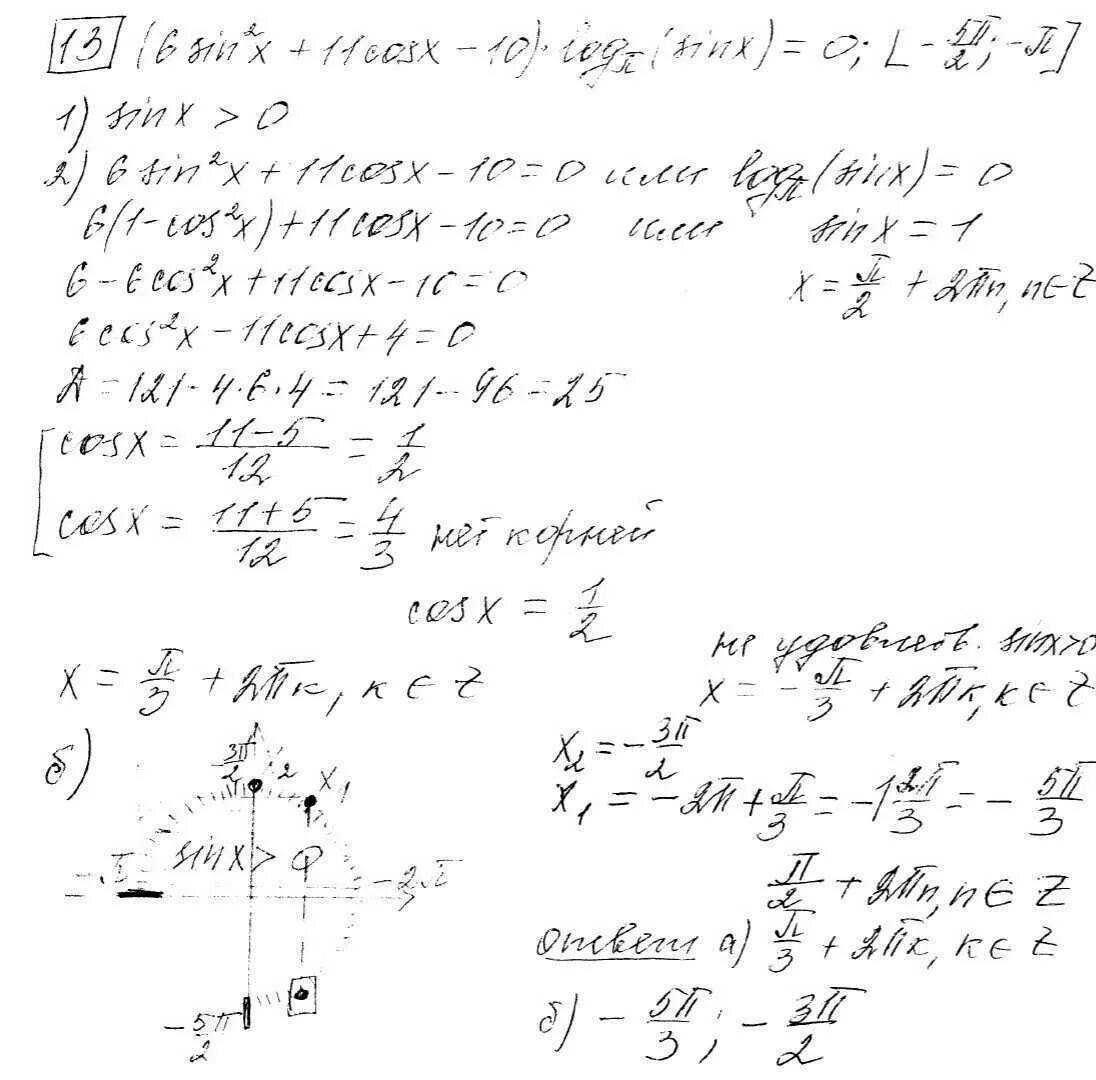 13 (6 sin²x + 11cosx − 10)·log_π(sinx) = 0; [−5π/2; −π]
1) sinx > 0
2) 6 sin²x + 11cosx − 10 = 0 или log_π(sinx) = 0
6(1−cos²x) + 11cosx − 10 = 0 или sinx = 1
6 − 6cos²x + 11cosx − 10 = 0 x = π/2 + 2πn, n ∈ Z
6cos²x − 11cosx + 4 = 0
Д = 121 − 4·6·4 = 121 − 96 = 25
cosx = (11−5)/12 = 1/2
cosx = (11+5)/12 = 4/3 нет корней
cosx = 1/2
не удовлетв. sinx>0
x = π/3 + 2πk, k ∈ Z x = −π/3 + 2πk, k ∈ Z
б)
3π/2 2 x₁
sinx > 0
−π −2π
−5π/2
x₂ = −3π/2
x₁ = −2π + π/3 = −1 2π/3 = −5π/3
π/2 + 2πn, n ∈ Z
ответ а) π/3 + 2πk, k ∈ Z
б) −5π/3; −3π/2